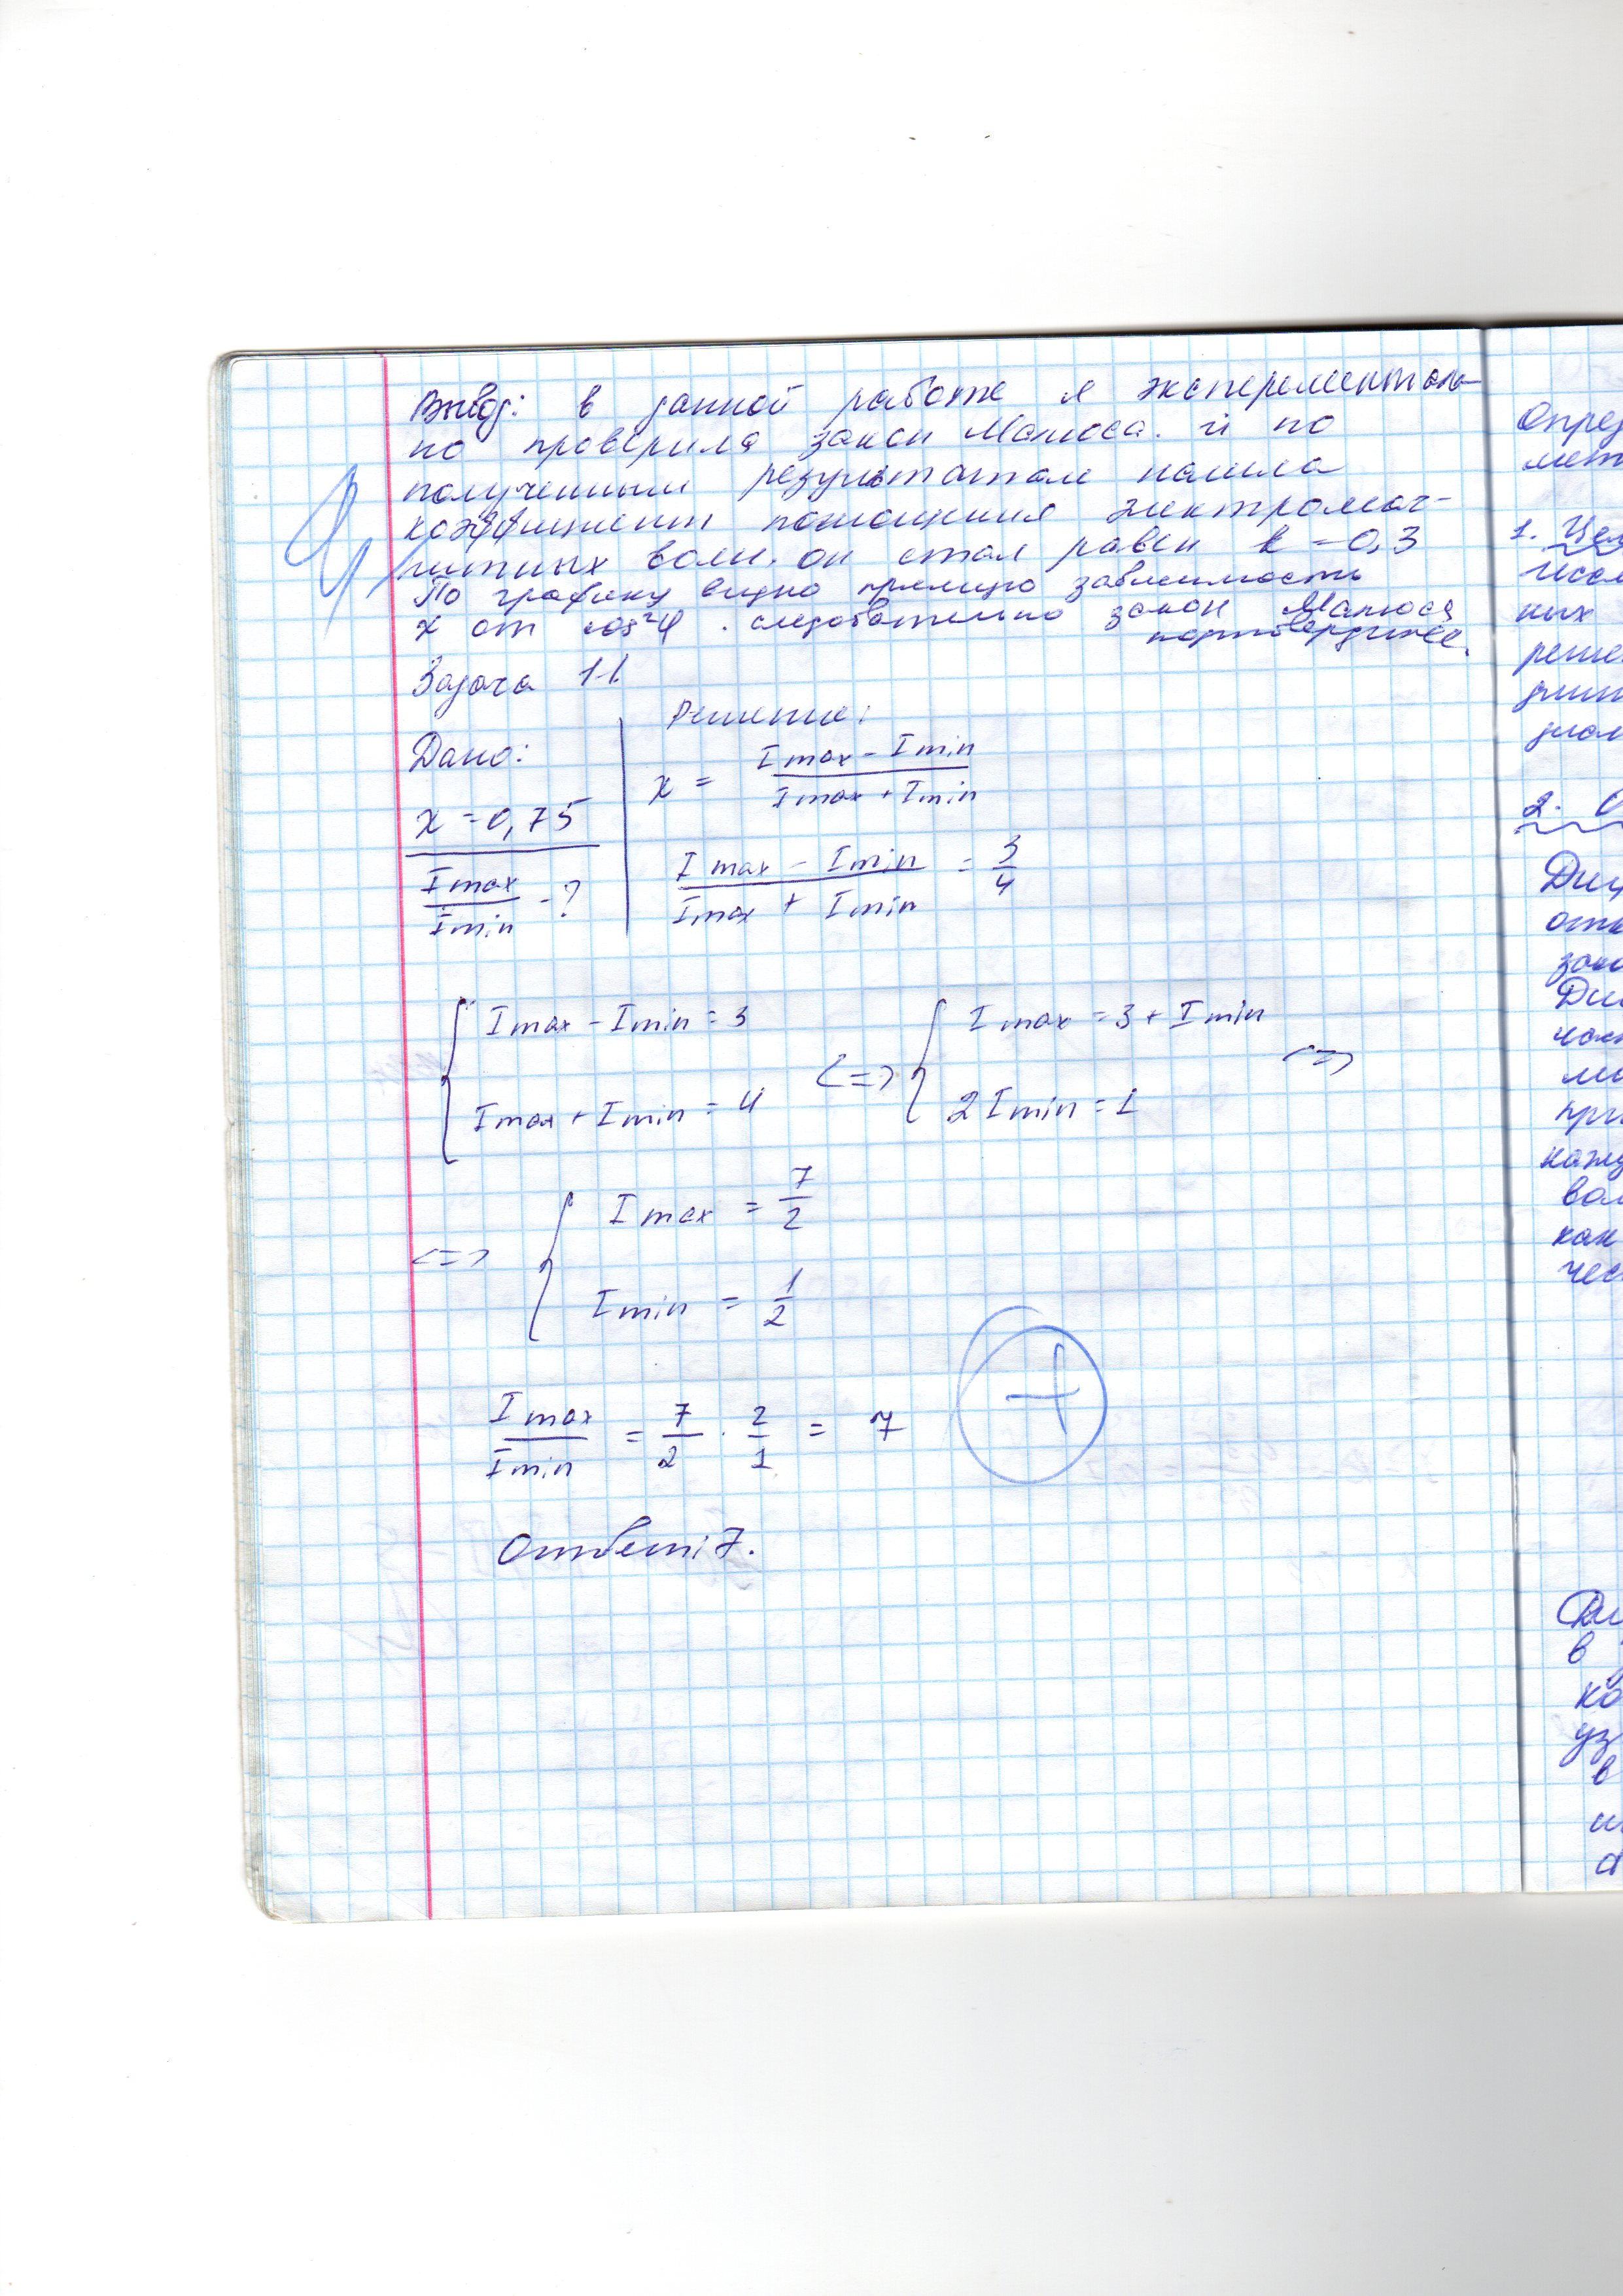 Вывод: в данной работе я эксперементаль-
но проверила закон Малюса. и по
полученным результатам нашла
коэффициент поглощения электромаг-
нитных волн. он стал равен k = 0,3
По графику видно прямую зависимость
x от cos²φ. следовательно закон Малюса
подтвердился.
Задача 11
Дано: Решение:
x = 0,75 x = (Imax - Imin)/(Imax + Imin)
Imax/Imin - ? (Imax - Imin)/(Imax + Imin) = 3/4
{ Imax - Imin = 3 { Imax = 3 + Imin
<=> <=>
Imax + Imin = 4 2 Imin = 1
<=> { Imax = 7/2
Imin = 1/2
Imax/Imin = 7/2 · 2/1 = 7 +
Ответ: 7.
Опред
мет
1. Цел
ных
реше
2. О
отк
зак
Ди
ми
при
кажд
вол
как
чес
в
ко
уз
в